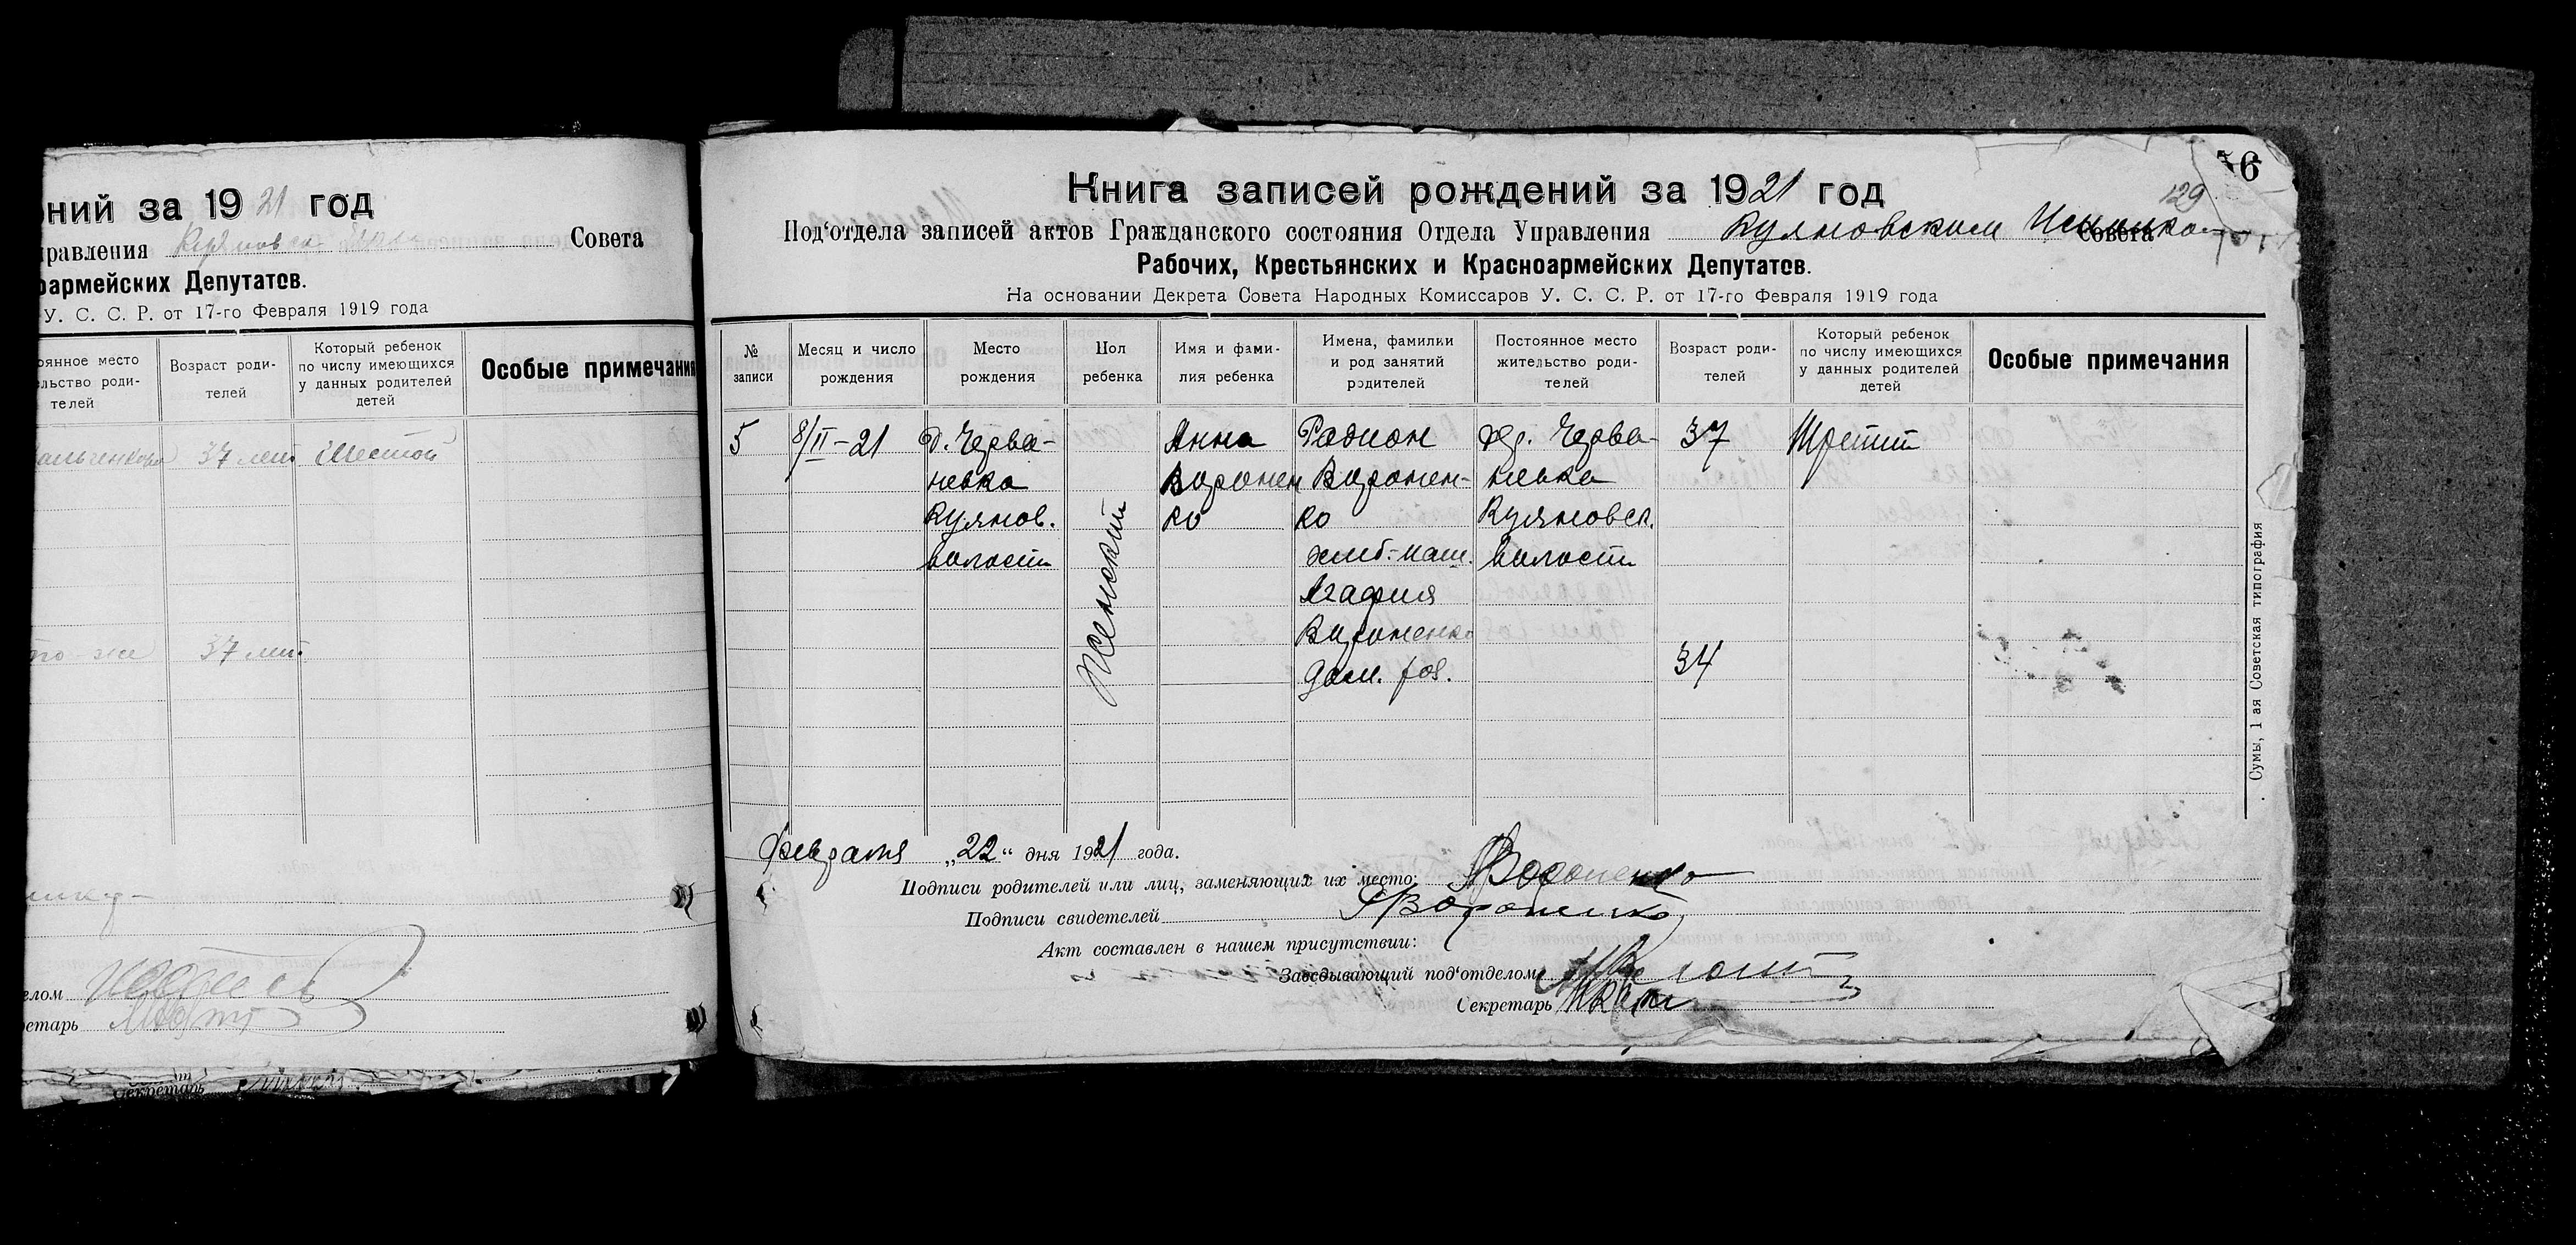 ний за 1921 год
правления Совета
оармейских Депутатов.
У. С. С. Р. от 17-го Февраля 1919 года
оянное место
льство роди-
телей
Возраст роди-
телей
Который ребенок
по числу имеющихся
у данных родителей
детей
Особые примечания
37 лет Шестой
то-же 37 лет
елом
ретарь
Секретарь
36
129
Книга записей рождений за 1921 год
Под'отдела записей актов Гражданского состояния Отдела Управления Куяновском Совета
Рабочих, Крестьянских и Красноармейских Депутатов.
На основании Декрета Совета Народных Комиссаров У. С. С. Р. от 17-го Февраля 1919 года
№
записи
Месяц и число
рождения
Место
рождения
Пол
ребенка
Имя и фами-
лия ребенка
Имена, фамилии
и род занятий
родителей
Постоянное место
жительство роди-
телей
Возраст роди-
телей
Который ребенок
по числу имеющихся
у данных родителей
детей
Особые примечания
5
8/II-21
д. Черва-
невка
Куянов.
волости
Женский
Анна
Воронен
ко
Радион
Воронен-
ко
хлеб.-паш.
Агафия
Вороненко
дом. хоз.
др. Черва-
невка
Куяновск.
волости
37
34
Третий
Февраля „22“ дня 1921 года.
Подписи родителей или лиц, заменяющих их место: Вороненко
Подписи свидетелей Вороненко
Акт составлен в нашем присутствии:
Заведывающий под'отделом
Секретарь
Сумы, 1 ая Советская типография